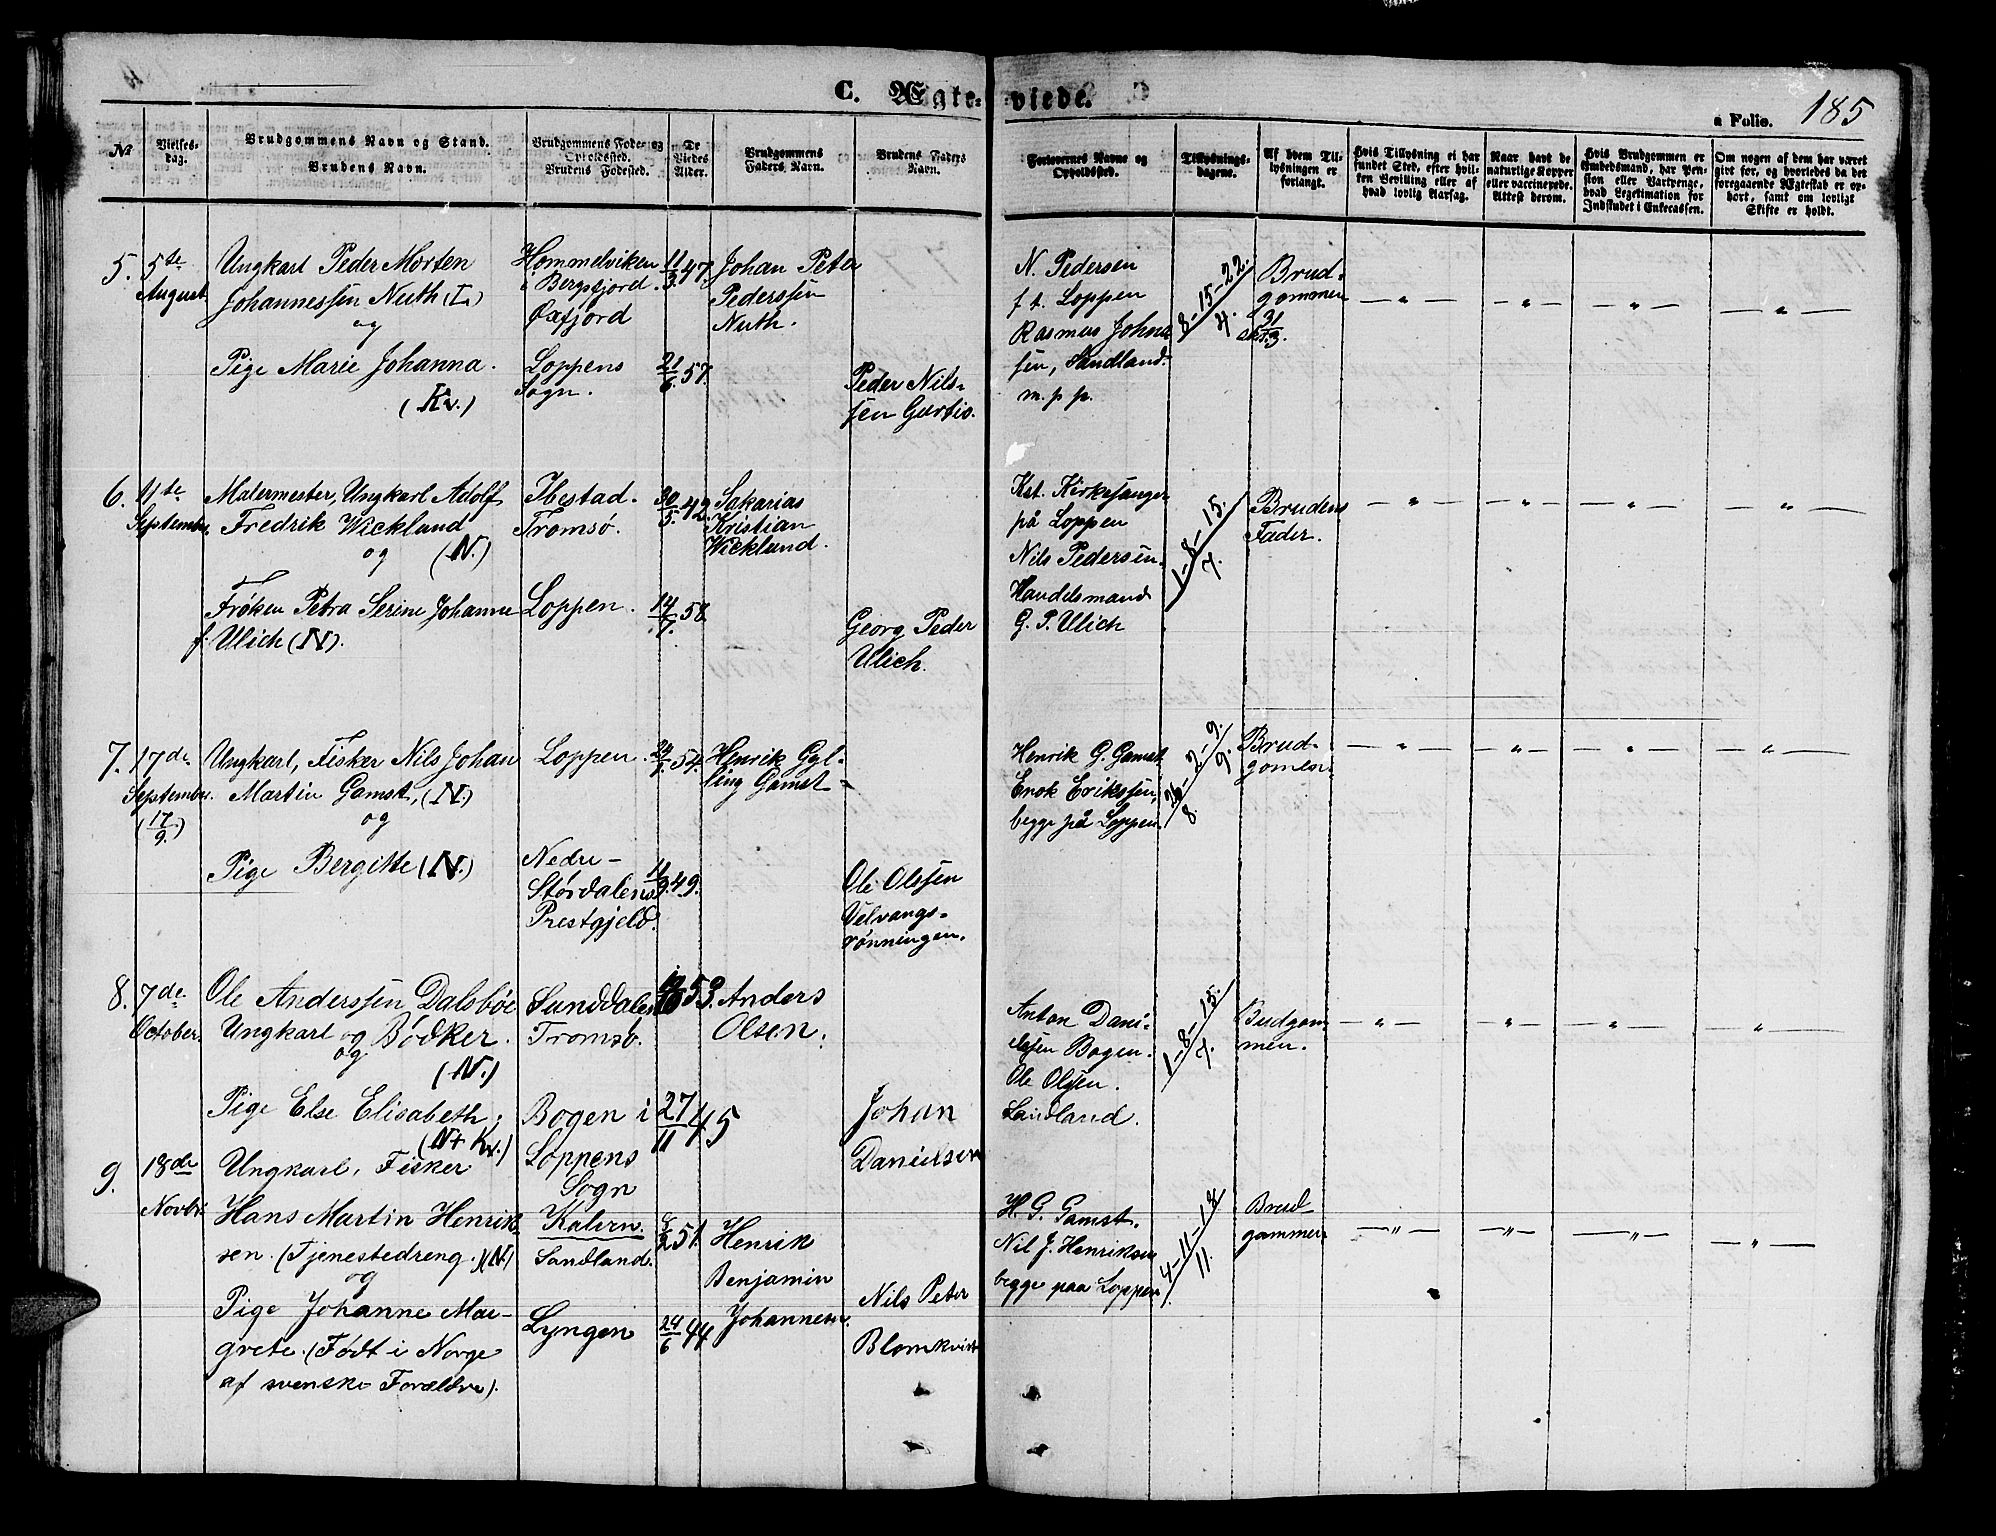 C. Ægteviede.
a Folio. 185
No
Vielses-
dag.
Brudgommens Navn og Stand.
Brudens Navn.
Brudgommens Føde- og
Opholdssted.
Brudens Fødested.
De
Viedes
Alder.
Brudgommens
Faders Navn.
Brudens Faders
Navn.
Forlovernes Navne og
Opholdssted.
Tillysnings-
dagene.
Af hvem Til-
lysningen er
forlangt.
Hvis Tillysning ei har
fundet Sted, efter hvil-
ken Bevilling eller af
hvad lovlig Aarsag.
Naar havt de
naturlige Kopper
eller vaccinerede.
Attest derom.
Hvis Brudgommen er
Embedsmand, har Pen-
sion eller Vartpenge,
hvad Legitimation for
Indskudet i Enkecassen.
Om nogen af dem har været
givt før, og hvorledes da det
foregaaende Ægteskab er op-
hørt, samt om lovligt
Skifte er holdt.
5. 5te
August
Ungkarl Peder Morten
Johannessen Nuth (L)
og
Pige Marie Johanna.
(Kv.)
Hommelviken
i Bergsfjord
Øxfjord
Loppens
Sogn.
11/3 47.
21/6 57.
Johan Peter
Pederssen
Nuth.
Peder Nils-
sen Gartis.
N. Pedersen
f. t. Loppen
Rasmus Johna
sen, Sandland.
m. p. p.
8-15-22.
4.
Brud-
gommen
31
3.
— " — — " — — " — — " —
6. 4te
September.
Malermester, Ungkarl Adolf
Fredrik Wicklund
og (N.)
Frøken Petra Serine Johanne
f. Ulich (N).
Ibestad.
Tromsø.
Loppen.
30/5. 42.
14/7. 58.
Sakarias
Kristian
Wicklund.
Georg Peder
Ulich.
Kst. Kirkesanger
på Loppen
Nils Pedersen.
Handelsmand
G. P. Ulich
1-8-15.
7.
Brudens
Fader.
— " — — " — — " — — " —
7. 17de
September.
(17/9.)
Ungkarl, Fisker Nils Johan
Martin Gamst, (N.)
og
Pige Bergitte (N.)
Loppen.
Nedre-
Størdalens
Prestgjeld.
54.
49.
Henrik Gyl-
ling Gamst
Ole Olssen
Velvangs-
rønningen.
Henrik G. Gamst
Enok Erikssen,
begge på Loppen.
26-2-9.
8. 9.
Brud-
gomen.
— " — — " — — " — — " —
8. 7de
October.
Ole Anderssen Dalsbøe
Ungkarl og Bødker.
og
(N.)
Pige Else Elisabeth,
(N + Kv.)
Sunddalen
Tromsø.
Bogen i
Loppens
Sogn
53.
27/11 45
Anders
Olsen.
Johan
Danielsen
Anton Dani-
elssen Bogen.
Ole Olssen.
Sandland.
1-8-15.
7.
Budgom
men.
— " — — " — — " — — " —
9. 18de
Novbr.
Ungkarl, Fisker
Hans Martin Henrik
sen. (Tjenestedreng.) (N.)
og
Pige Johanne Mar-
grete. (Født i Norge
af svenske Forældre).
Kalven.
Sandland.
Lyngen
51.
24/6 44
Henrik
Benjamin
Johannesen.
Nils Peter
Blomkvist
H. G. Gamst.
Nil J. Henriksen
begge paa Loppen.
4-11-18
11.
Brud-
gommen
— " — — " — — " — — " —